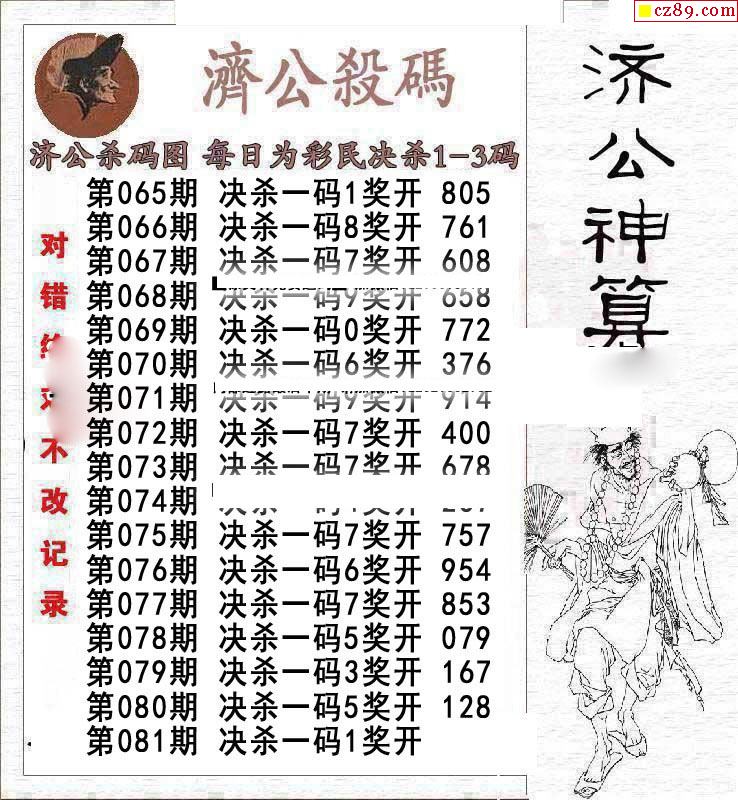 cz89.com
濟公殺碼
济公杀码图 每日为彩民决杀1-3码
第065期 决杀一码1奖开 805
第066期 决杀一码8奖开 761
第067期 决杀一码7奖开 608
第068期 决杀一码9奖开 658
第069期 决杀一码0奖开 772
第070期 决杀一码6奖开 376
第071期 决杀一码9奖开 914
第072期 决杀一码7奖开 400
第073期 决杀一码7奖开 678
第074期
第075期 决杀一码7奖开 757
第076期 决杀一码6奖开 954
第077期 决杀一码7奖开 853
第078期 决杀一码5奖开 079
第079期 决杀一码3奖开 167
第080期 决杀一码5奖开 128
第081期 决杀一码1奖开
对错
不改记录
济公神算